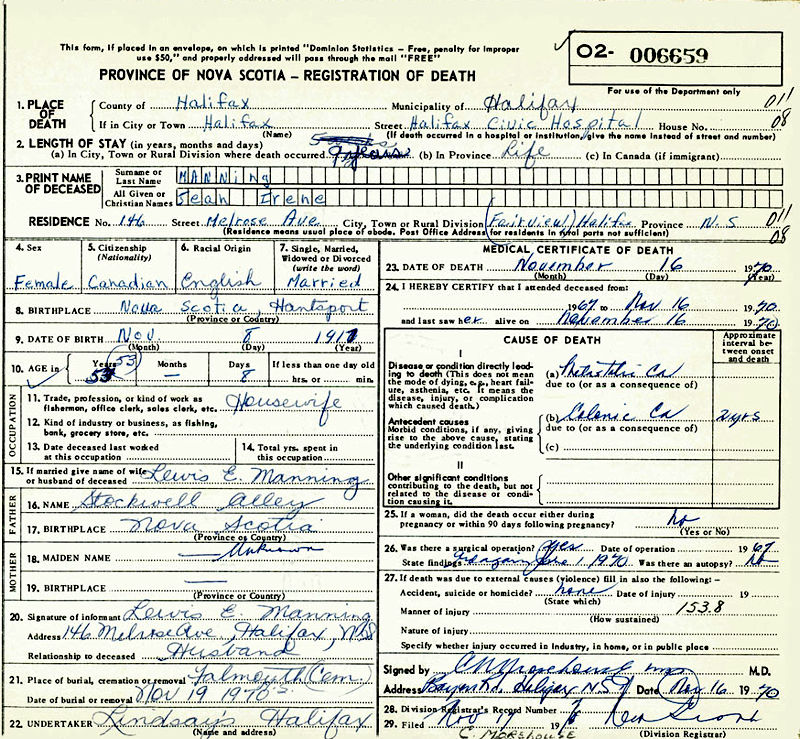 This form, if placed in an envelope, on which is printed "Dominion Statistics – Free, penalty for improper
use $50," and properly addressed will pass through the mail "FREE"
PROVINCE OF NOVA SCOTIA – REGISTRATION OF DEATH
02- 006659
For use of the Department only
1. PLACE OF DEATH County of Halifax Municipality of Halifax 011
If in City or Town Halifax Street Halifax Civic Hospital House No. 08
(Name) (If death occurred in a hospital or institution, give the name instead of street and number)
2. LENGTH OF STAY (in years, months and days)
(a) In City, Town or Rural Division where death occurred (b) In Province Life (c) In Canada (if immigrant)
3. PRINT NAME OF DECEASED Surname or Last Name MANNing
All Given or Christian Names Jean Irene
RESIDENCE No. 146 Street Melrose Ave City, Town or Rural Division (Fairview) Halifax Province N.S 011
(Residence means usual place of abode. Post Office Address for residents in rural parts not sufficient) 08
4. Sex Female
5. Citizenship (Nationality) Canadian
6. Racial Origin English
7. Single, Married, Widowed or Divorced (write the word) Married
8. BIRTHPLACE Nova Scotia, Hantsport
(Province or Country)
9. DATE OF BIRTH Nov. 8 1917
(Month) (Day) (Year)
10. AGE in Years 53 53 Months – Days 8 If less than one day old hrs. or min.
OCCUPATION
11. Trade, profession, or kind of work as fisherman, office clerk, sales clerk, etc. Housewife
12. Kind of industry or business, as fishing, bank, grocery store, etc.
13. Date deceased last worked at this occupation
14. Total yrs. spent in this occupation
15. If married give name of wife or husband of deceased Lewis E. Manning
FATHER
16. NAME Stockwell Alley
17. BIRTHPLACE Nova Scotia
(Province or Country)
MOTHER
18. MAIDEN NAME Unknown
19. BIRTHPLACE —
(Province or Country)
20. Signature of informant Lewis E. Manning
Address 146 Melrose Ave, Halifax, N.S
Relationship to deceased Husband
21. Place of burial, cremation or removal Falmouth (Cem.)
Date of burial or removal Nov 19 1970
22. UNDERTAKER Lindsay's Halifax
(Name and address)
MEDICAL CERTIFICATE OF DEATH
23. DATE OF DEATH November 16 1970
(Month) (Day) (Year)
24. I HEREBY CERTIFY that I attended deceased from:
1967 to Nov 16 1970
and last saw her alive on November 16 1970
CAUSE OF DEATH
Approximate interval between onset and death
I
Disease or condition directly leading to death (This does not mean the mode of dying, e.g., heart failure, asthenia, etc. It means the disease, injury, or complication which caused death.)
(a) Metastatic Ca
due to (or as a consequence of)
Antecedent causes
Morbid conditions, if any, giving rise to the above cause, stating the underlying condition last.
(b) Colonic Ca 2 yrs
due to (or as a consequence of)
(c)
II
Other significant conditions contributing to the death, but not related to the disease or condition causing it.
25. If a woman, did the death occur either during pregnancy or within 90 days following pregnancy? No
(Yes or No)
26. Was there a surgical operation? Yes Date of operation 1967
State findings 1, 1970 Was there an autopsy? No
27. If death was due to external causes (violence) fill in also the following:–
Accident, suicide or homicide? none Date of injury 19
(State which)
Manner of injury 153.8
(How sustained)
Nature of injury
Specify whether injury occurred in Industry, in home, or in public place
Signed by M.D.
Address Halifax N.S. Date Nov 16 1970
28. Division Registrar's Record Number
29. Filed Nov 17 1970
(Division Registrar)
C. MORSHOUSE